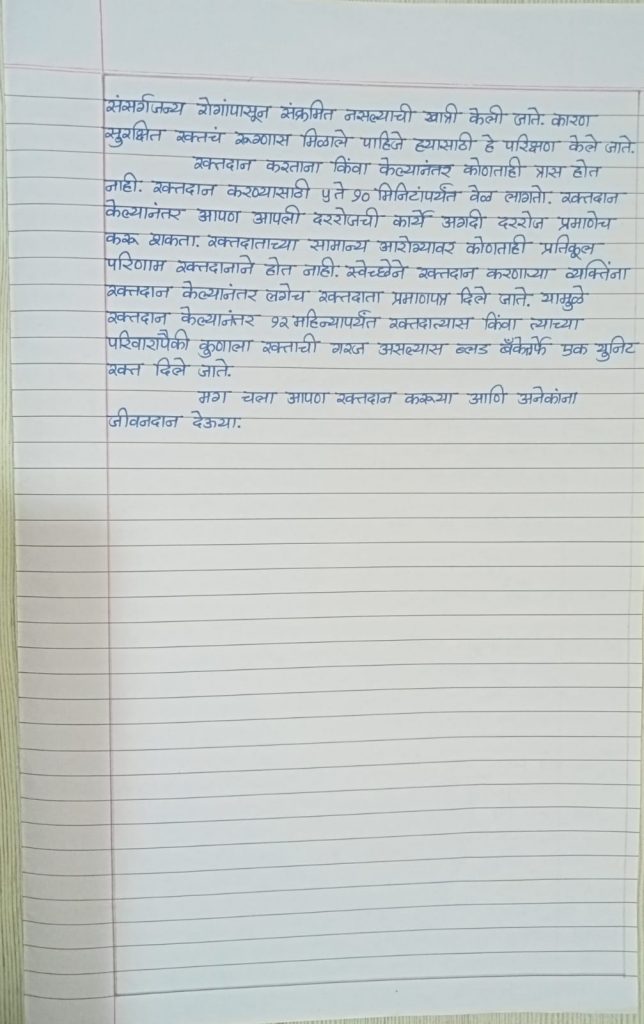 संसर्गजन्य रोगांपासून संक्रमित नसल्याची खात्री केली जाते. कारण
सुरक्षित रक्तचं रूग्णास मिळाले पाहिजे ह्यासाठी हे परिक्षण केले जाते.
रक्तदान करताना किंवा केल्यानंतर कोणताही त्रास होत
नाही. रक्तदान करण्यासाठी ५ ते १० मिनिटांपर्यंत वेळ लागतो. रक्तदान
केल्यानंतर आपण आपली दररोजची कार्ये अगदी दररोज प्रमाणेच
करू शकता. रक्तदाताच्या सामान्य आरोग्यावर कोणताही प्रतिकूल
परिणाम रक्तदानाने होत नाही. स्वेच्छेने रक्तदान करणाऱ्या व्यक्तिंना
रक्तदान केल्यानंतर लगेच रक्तदाता प्रमाणपत्र दिले जाते. यामुळे
रक्तदान केल्यानंतर १२ महिन्यापर्यंत रक्तदात्यास किंवा त्याच्या
परिवारापैकी कुणाला रक्ताची गरज असल्यास ब्लड बँकेर्फे एक युनिट
रक्त दिले जाते.
मग चला आपण रक्तदान करूया आणि अनेकांना
जीवनदान देऊया.